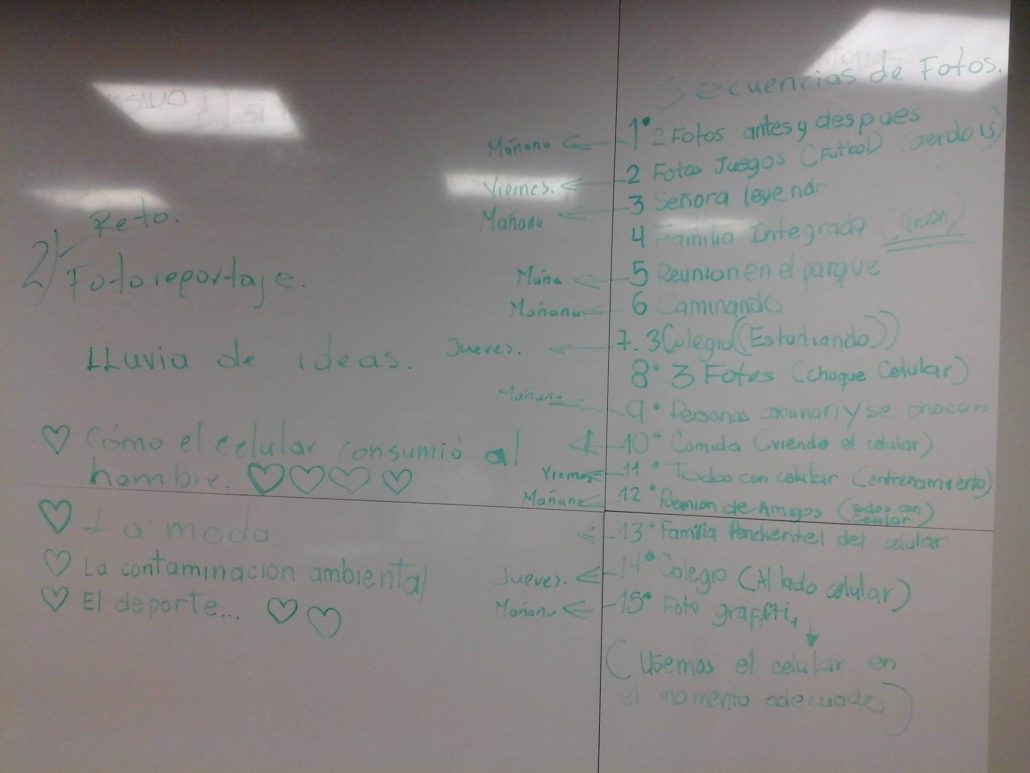 2) Reto.
Fotoreportaje.
LLuvia de ideas.
♡ Cómo el celular consumió al
hombre. ♡♡♡♡
♡ La moda
♡ La contaminación ambiental
♡ El deporte... ♡♡
Secuencias de Fotos.
Mañana ← 1° 2 Fotos antes y despues
Viernes. ← 2 Fotos Juegos (Futbol)
Mañana ← 3 Señora leyendo
4 Familia Integrada (unión)
Maña ← 5 Reunion en el parque
Mañana ← 6 Caminando
Jueves. ← 7. 3 Colegio (Estudiando)
8° 3 Fotos (choque Celular)
Mañana ← 9° Personas caminan y se chocan
← 10° Comida (viendo el celular)
Viernes ← 11° Todos con celular (entrenamiento)
Mañana ← 12° Reunion de Amigos (Todos con celular)
← 13° Familia Pendientel del celular
Jueves. ← 14° Colegio (Al lado celular)
Mañana ← 15° Foto grafiti
(Usemos el celular en
el momento adecuado)